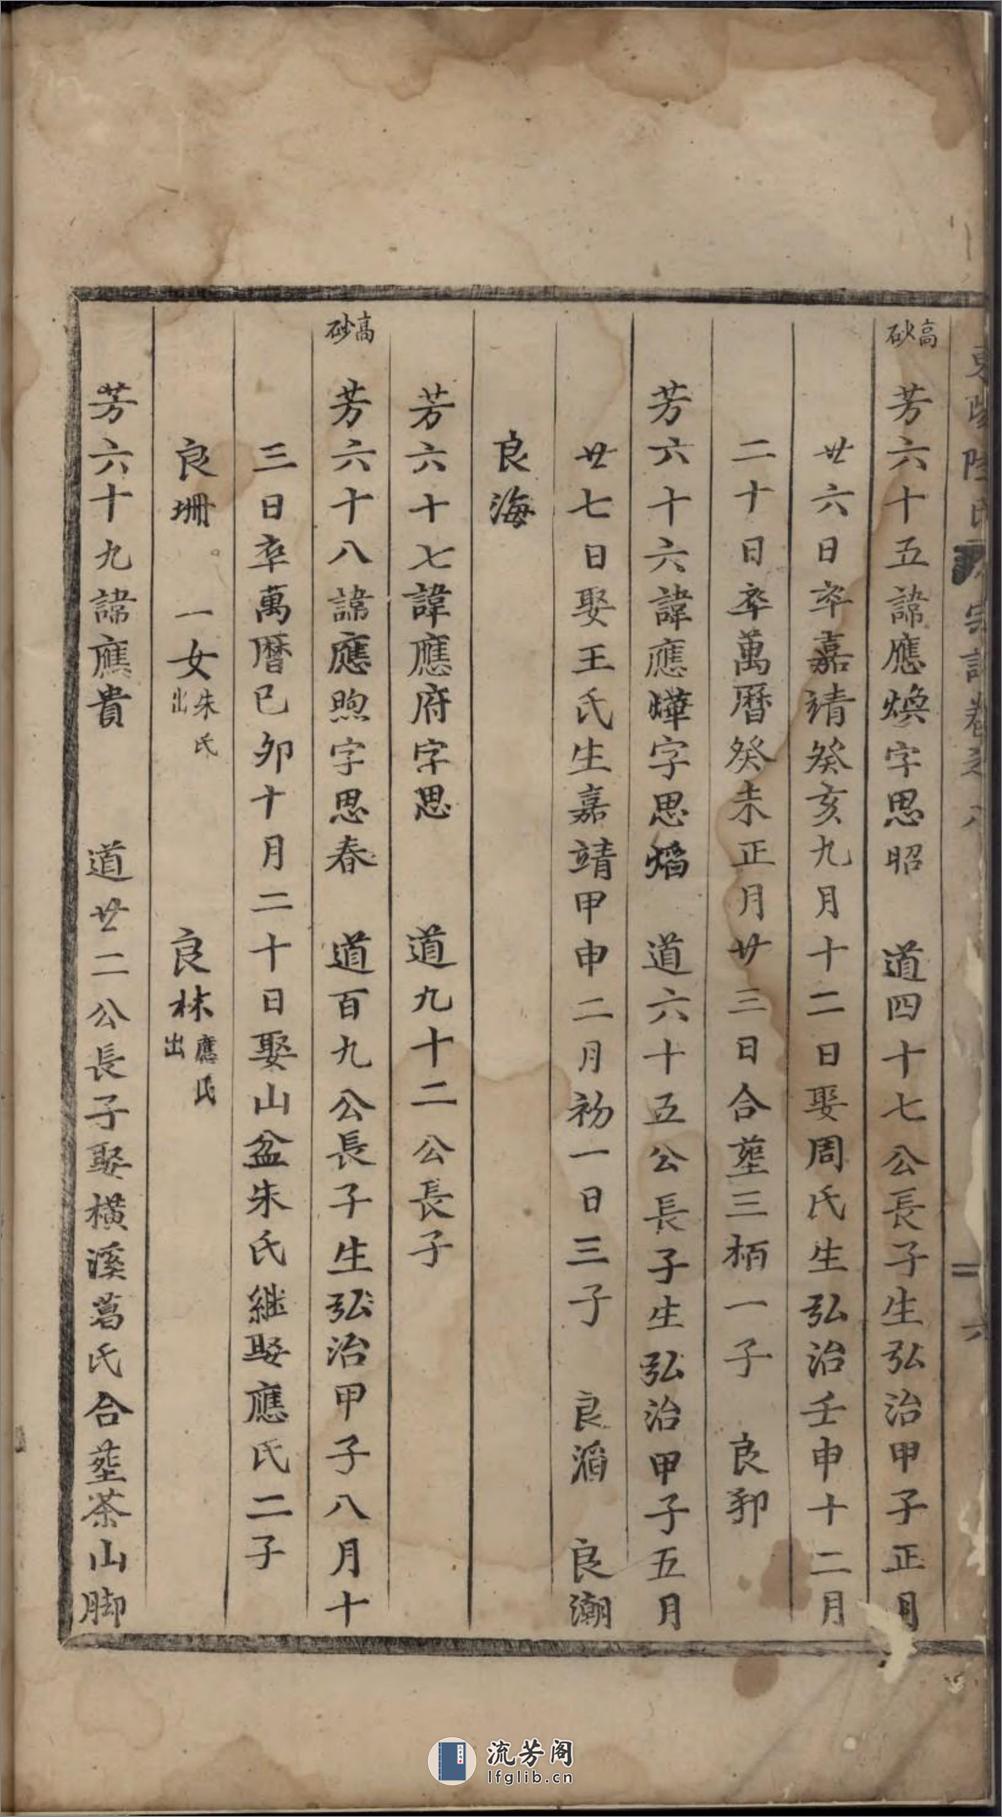 東陽陸氏宗譜卷之八
六
高砂
芳六十五諱應煥字思昭 道四十七公長子生弘治甲子正月
廿六日卒嘉靖癸亥九月十二日娶周氏生弘治壬申十二月
二十日卒萬曆癸未正月廿三日合塟三栢一子 良夘
芳六十六諱應曄字思熖 道六十五公長子生弘治甲子五月
廿七日娶王氏生嘉靖甲申二月初一日三子 良滔 良潮
良海
芳六十七諱應府字思 道九十二公長子
高砂
芳六十八諱應煦字思春 道百九公長子生弘治甲子八月十
三日卒萬曆已夘十月二十日娶山盆朱氏継娶應氏二子
良珊 一女朱氏出 良林應氏出
芳六十九諱應貴 道廿二公長子娶橫溪葛氏合塟茶山脚
流芳阁
lfglib.cn